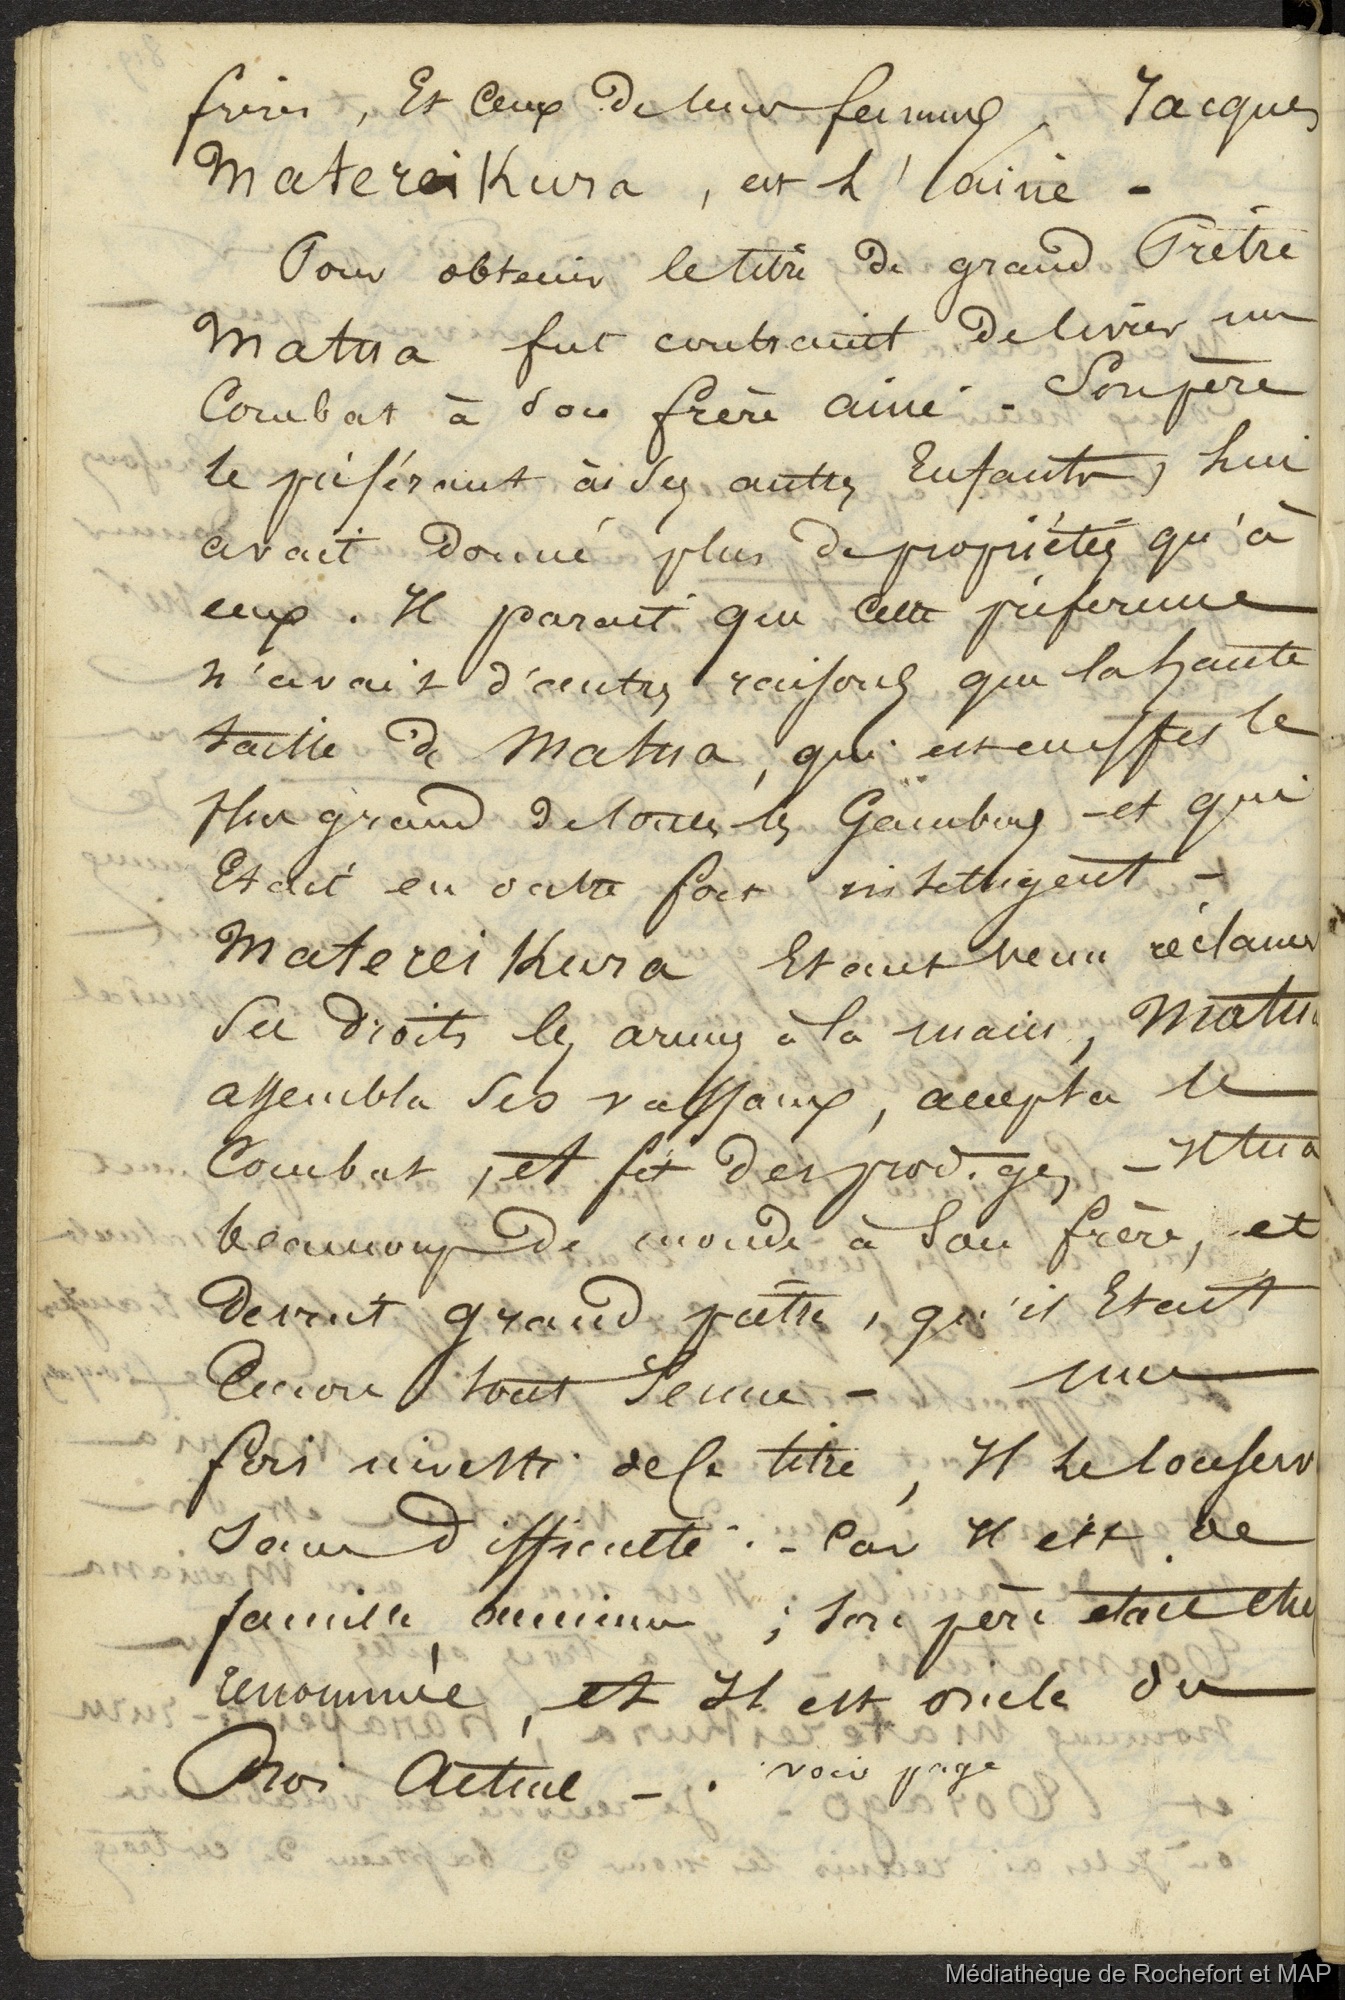 frères, Et Ceux De leurs femmes, Jacques
Matereikura, est l'ainé -
Pour obtenir le titre De grand Prêtre
Matua fut contraint De livrer un
Combat à son frère ainé. - Son père
le préférant à ses autres Enfants, lui
avait Donné plus de propriétés qu'à
eux. Il parait que Cette préference
n'avait d'autres raisons que la haute
taille De Matua, qui est en effet le
plus grand De tous les Gambiers - et qui
Etait en outre fort intelligent -
Materei Kura Etant venu réclamer
Ses droits les armes à la main, Matua
assembla Ses vassaux, accepta le
Combat, et fit Des prodiges, - Il tua
beaucoup De monde à Son frère, et
Devint grand prêtre, qu'il Etait
Encore tout Jeune - une
fois investi de Ce titre, Il le Conserv
Sans Difficulté. - Car Il est de
famille ; Son père était chef
renommé, et Il est oncle du
Roi Actuel - . voir page
Médiathèque de Rochefort et MAP